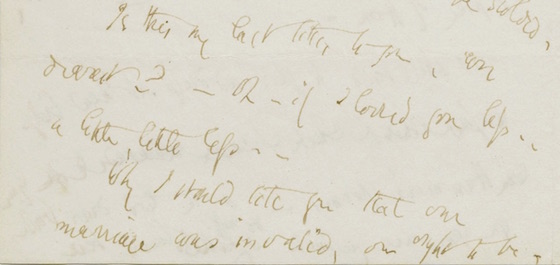 be scolded,
Is this my last letter to you, ever
dearest? — Oh — if I loved you less . .
a little, little less . .
Why I should tell you that our
marriage was invalid, or ought to be –